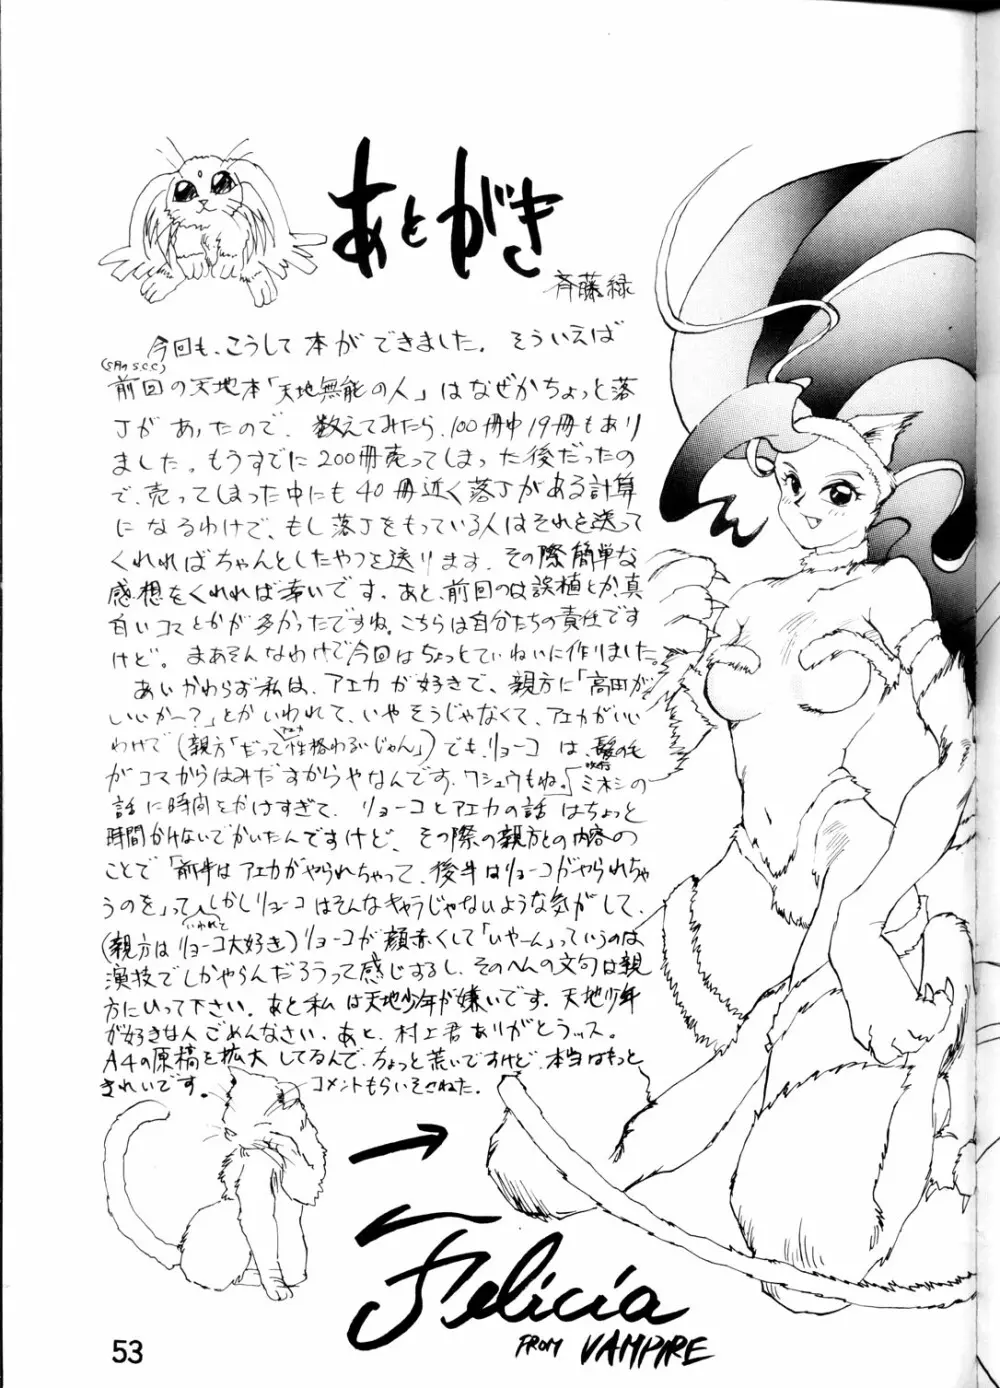 あとがき
斉藤緑
今回も、こうして本ができました。そういえば
(5月のS.C.C)
前回の天地本「天地無能の人」はなぜかちょっと落
丁があったので、数えてみたら、100冊中19冊もあり
ました。もうすでに200冊売ってしまった後だったの
で、売ってしまった中にも40冊近く落丁がある計算
になるわけで、もし落丁をもっている人はそれを送って
くれればちゃんとしたやつを送ります。その際簡単な
感想をくれれば幸いです。あと、前回のは誤植とか、真
白いコマとかが多かったですね。こちらは自分たちの責任です
けど。まあそんなわけで今回はちょっとていねいに作りました。
あいかわらず私は、アエカが好きで、親方に「高田が
いいかー?」とかいわれて、いやそうじゃなくて、アエカがいい
わけで(親方「だって性格わるいじゃん」)でも、リョーコは、髪の毛
がコマからはみだすからやなんです。ワシュウもね。「ミホシの
話に時間をかけすぎて、リョーコとアエカの話はちょっと
時間かけないでかいたんですけど、その際の親方との内容の
ことで「前半はアエカがやられちゃって、後半はリョーコがやられちゃ
うのを」っていわれてしかしリョーコはそんなキャラじゃないような気がして、
(親方はリョーコ大好き)リョーコが顔赤くして「いやーん」っていうのは
演技でしかやらんだろうって感じするし、そのへんの文句は親
方にいって下さい。あと私は天地少年が嫌いです。天地少年
が好きな人ごめんなさい。あと、村上君ありがとうッス。
A4の原稿を拡大してるんで、ちょっと荒いですけど、本当はもっと
きれいです。 コメントもらいそこねた。
Felicia
FROM VAMPIRE
53